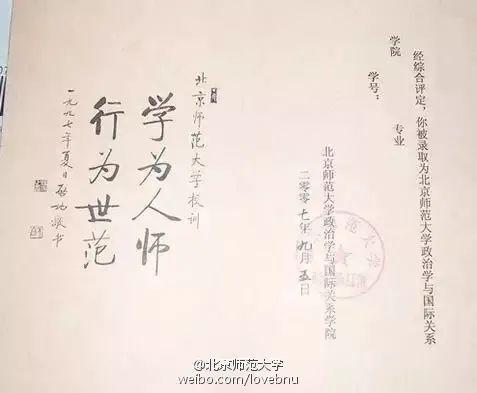 经综合评定，你被录取为北京师范大学政治学与国际关系
学院 专业
学号：
北京师范大学政治学与国际关系学院
二〇〇七年九月五日
北京师范大学校训
学为人师
行为世范
一九九七年夏日 启功敬书
@北京师范大学
weibo.com/lovebnu